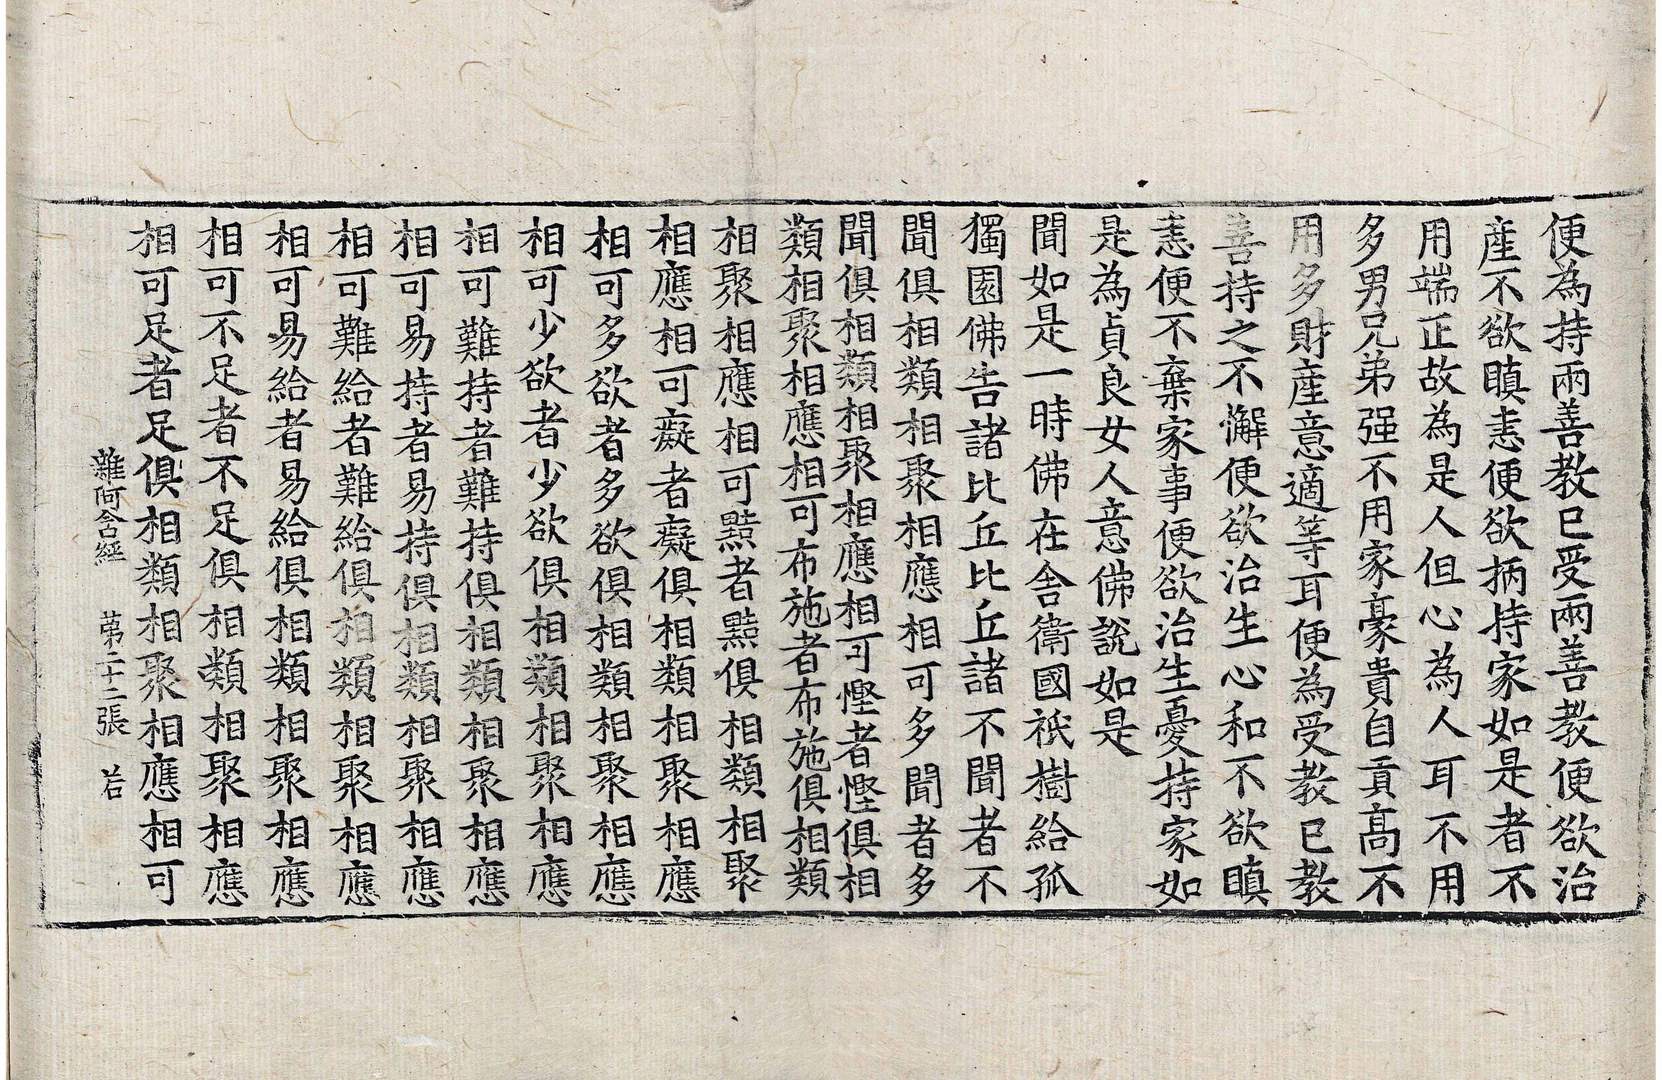 便為持兩善教已受兩善教便欲治
産不欲瞋恚便欲抦持家如是者不
用端正故為是人但心為人耳不用
多男兄弟强不用家豪貴自貢高不
用多財産意適等耳便為受教已教
善持之不懈便欲治生心和不欲瞋
恚便不棄家事便欲治生憂持家如
是為貞良女人意佛說如是
聞如是一時佛在舎衛國祇樹給孤
獨園佛告諸比丘比丘諸不聞者不
聞俱相類相聚相應相可多聞者多
聞俱相類相聚相應相可慳者慳俱相
類相聚相應相可布施者布施俱相類
相聚相應相可黠者黠俱相類相聚
相應相可癡者癡俱相類相聚相應
相可多欲者多欲俱相類相聚相應
相可少欲者少欲俱相類相聚相應
相可難持者難持俱相類相聚相應
相可易持者易持俱相類相聚相應
相可難給者難給俱相類相聚相應
相可易給者易給俱相類相聚相應
相可不足者不足俱相類相聚相應
相可足者足俱相類相聚相應相可
雜阿含經 苐二十二張 若